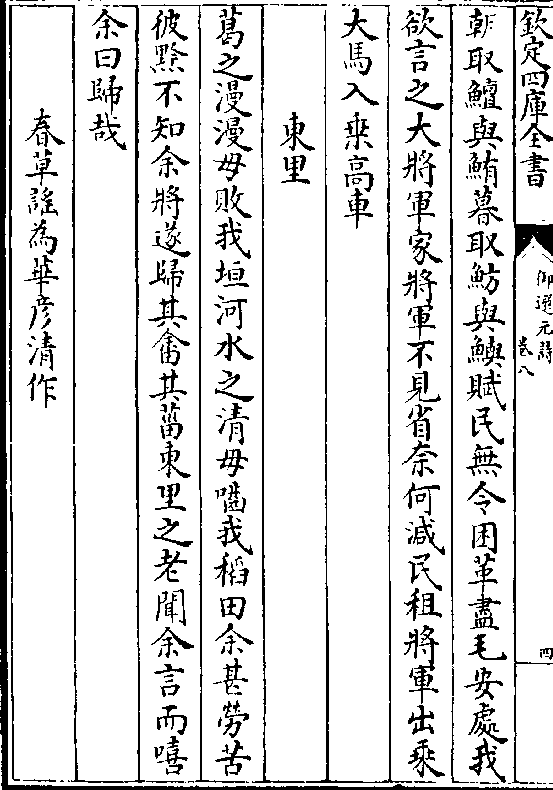 欽定四庫全書
御選元詩
卷八
四
朝取鱣與鮪暮取魴與鱮賦民無令困革盡毛安處我
欲言之大將軍家將軍不見省奈何減民租將軍出乘
大馬入乗高車
東里
葛之漫漫毋敗我垣河水之清毋嚙我稻田余甚勞苦
彼黠不知余將遂歸其畬其菑東里之老聞余言而嘻
余曰歸哉
春草謡為華彦清作